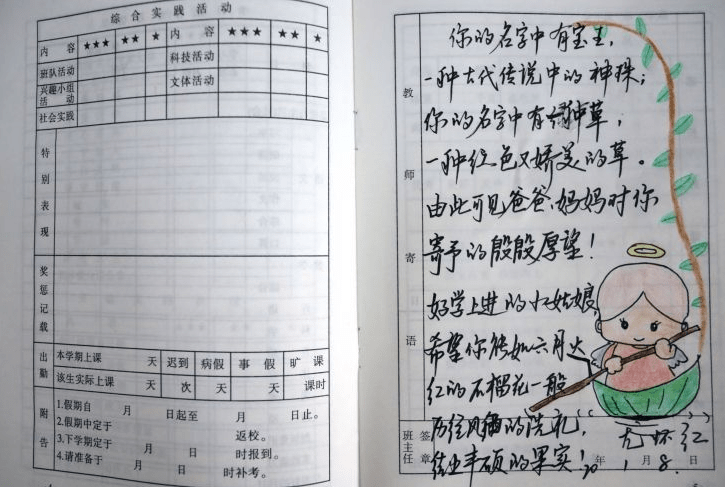 综合实践活动
内 容 ★★★ ★★ ★ 内 容 ★★★ ★★ ★
班队活动 科技活动
兴趣小组活动 文体活动
社会实践
特别表现
奖惩记载
出勤 本学期上课 天 迟到 病假 事假 旷课
该生实际上课 天 次 天 天 课时
附告
1.假期自 月 日起至 月 日止。
2.假期中定于 返校。
3.下学期定于 月 日 时报到。
4.请准备于 月 日 时补考。
教师寄语
你的名字中有宝玉,
一种古代传说中的神珠;
你的名字中有种草,
一种红色又娇美的草。
由此可见爸爸、妈妈对你
寄予的殷殷厚望!
好学上进的小姑娘,
希望你能如六月火
红的石榴花一般
历经风雨的洗礼,
结出丰硕的果实!
班主任 签章 尤怀红
年 月 日
1. 8.